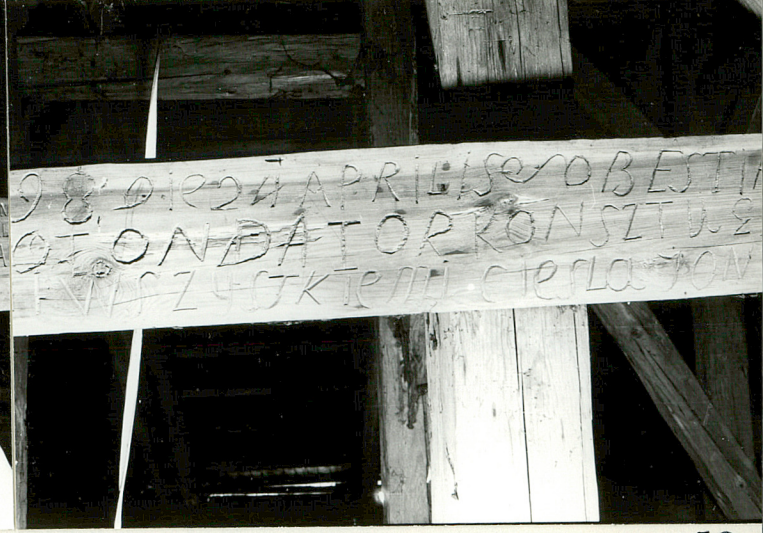 98 Die 24 APRILIS OBESTI
FONDATOR KONSZTU
WSZYSTKIemi cieslaION